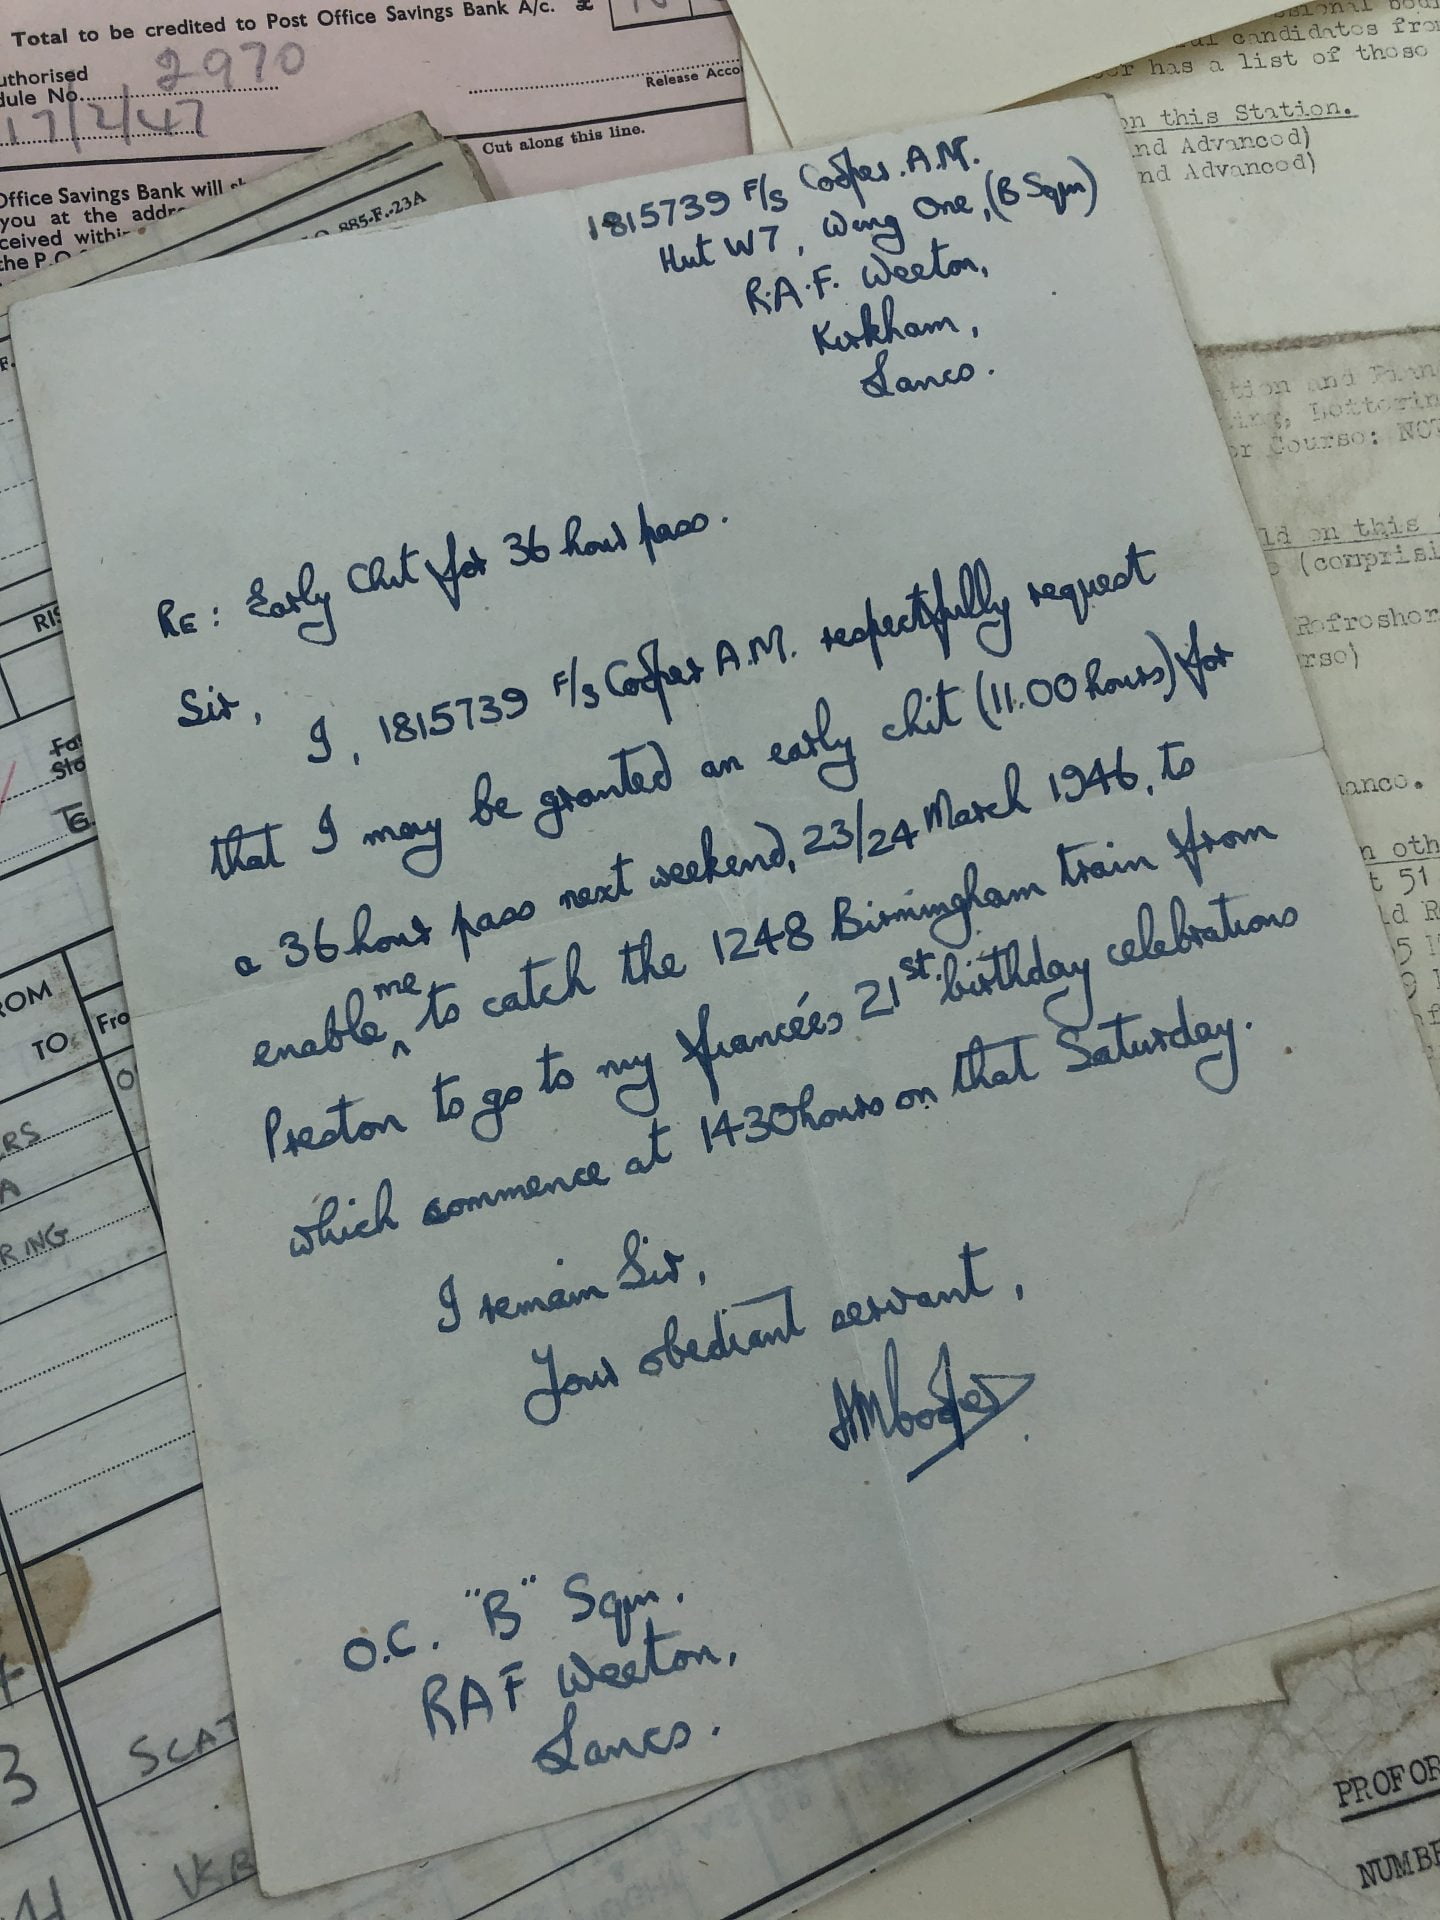 Total to be credited to Post Office Savings Bank A/c. £
uthorised
dule No. 2970
17/2/47
Release Acco
Cut along this line.
Office Savings Bank will
you at the addre
ceived within
the P.O.
885-F.-23A
1815739 F/S Cooper. A.M.
Hut W7, Wing One, (B Sqm)
R.A.F. Weeton,
Kirkham,
Lancs.
RE: Early Chit for 36 hour pass.
Sir,
I, 1815739 F/S Cooper A.M. respectfully request
that I may be granted an early chit (11.00 hours) for
a 36 hour pass next weekend, 23/24 March 1946, to
enable me to catch the 1248 Birmingham train from
Preston to go to my fiancées 21st. birthday celebrations
which commence at 1430 hours on that Saturday.
I remain Sir,
Your obediant servant,
AMCooper
O.C. "B" Sqm.
RAF Weeton,
Lancs.
candidates fro
er has a list of those
on this Station.
nd Advanced)
nd Advanced)
tion and Plan
ing, Lettering
or Course: NOT
ld on this
(comprisi
Refresher
rso)
anco.
n oth
t 51
RIS
Fa
Sta
ROM
TO
Fro
ERS
A
RING
3
SCAT
PROFOR
NUMBE